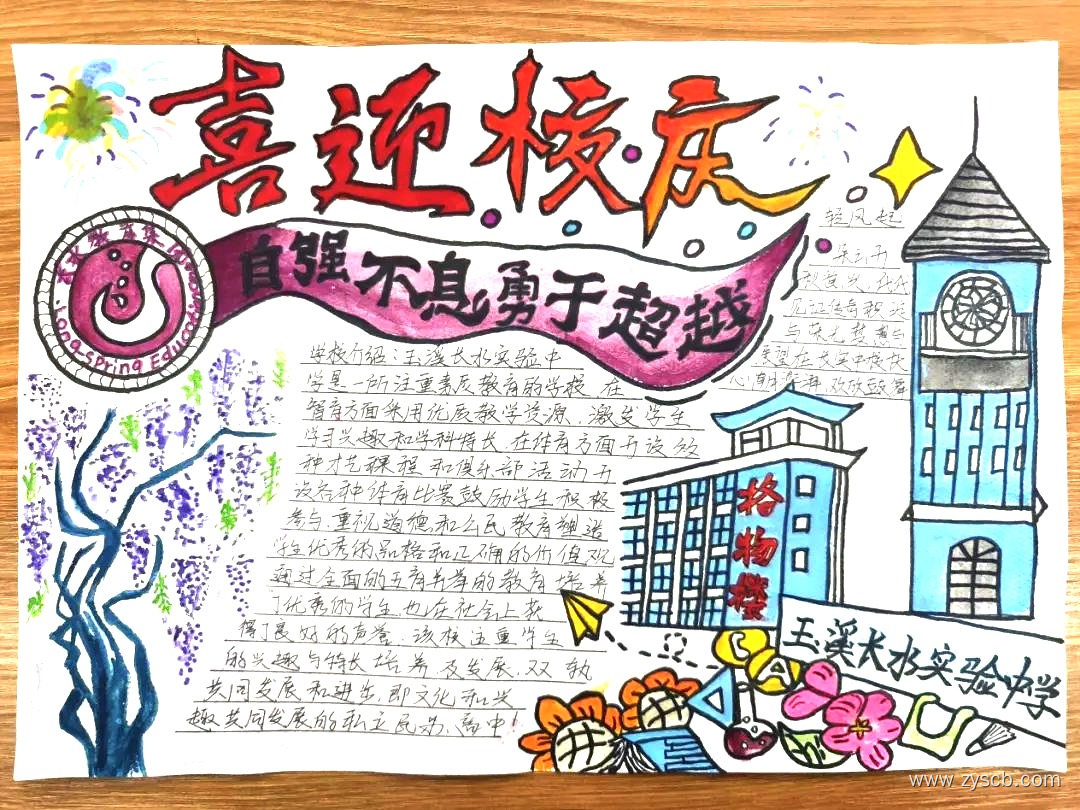 喜迎校庆
自强不息 勇于超越
长水教育集团
Long-spring Education
轻风起
与荣光梦想与
学校介绍：玉溪长水实验中
学是一所注重素质教育的学校，在
智育方面采用优质教学资源，激发学生
学习兴趣和学科特长，在体育方面开设多
种才艺课程和俱乐部活动开
设各种体育比赛鼓励学生积极
参与，重视道德和公民教育塑造
学生优秀的品格和正确的价值观
通过全面的五育并举的教育培养
了优秀的学生也在社会上获
得了良好的声誉，该校注重学生
的兴趣与特长培养及发展，双轨
共同发展和进步，即文化和兴
趣共同发展的私立民办高中！
格物楼
玉溪长水实验中学
www.zyscb.com